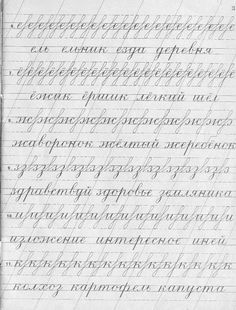 ель ельник езда деревня
ёжик ёршик лёгкий шёл
жаворонок жёлтый жеребёнок
здравствуй здоровье земляника
изложение интересное иней
колхоз картофель капуста